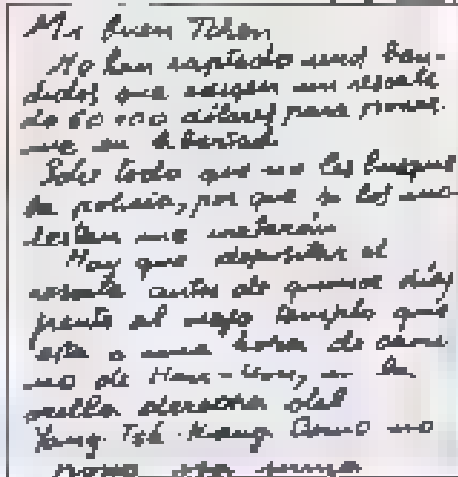 Mi buen Tchen
Me han raptado unos ban-
didos que exigen un rescate
de 60.000 dólares para poner-
me en libertad
Sobre todo que no les busque
la policía, por que si los mo-
lestan me matarán
Hay que depositar el
rescate antes de quince días
frente al viejo templo que
está a una hora de cami
no de Han-Kou, en la
orilla derecha del
Yang-Tsé-Kiang Como no